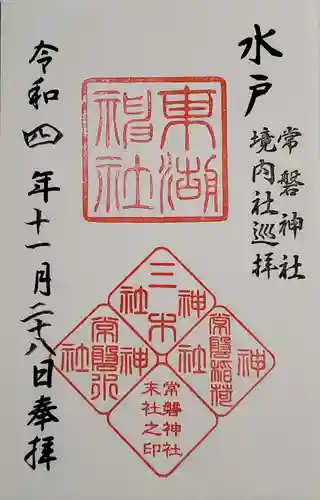 水戸
常磐神社
境内社巡拝
東湖
神社
三木
神社
常磐稲荷
神社
常磐
神社
常磐神社
末社之印
令和四年十一月二十八日奉拝